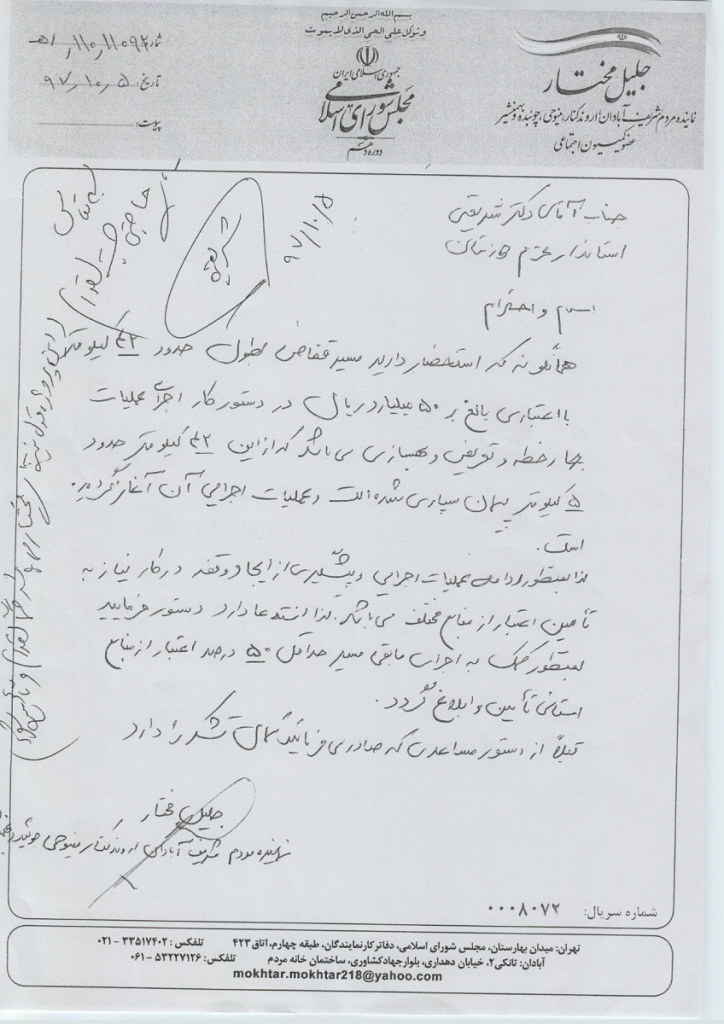 بسم الله الرحمن الرحیم
و توکل علی الحی الذی لایموت
جمهوری اسلامی ایران
مجلس شورای اسلامی
دوره دهم
جلیل مختار
نماینده مردم شریف آبادان، اروندکنار، مینوحی، چوئبده و بهمنشیر
عضو کمیسیون اجتماعی
شماره: ۱۱۰٫۱۱۰۹۲
تاریخ: ۹۷٫۱۰٫۵
پیوست:
جناب آقای دکتر شریعتی
استاندار محترم خوزستان
سلام و احترام
همانگونه که استحضار دارید مسیر قفاص بطول حدود ۴۲ کیلومتر
با اعتباری بالغ بر ۵۰ میلیارد ریال در دستور کار اجرای عملیات
چهار خطه و تعریض و بهسازی می باشد که از این ۴۲ کیلومتر حدود
۵ کیلومتر پیمان سپاری شده است و عملیات اجرایی آن آغاز گردیده
است.
لذا بمنظور ادامه عملیات اجرایی و پیشگیری از ایجاد وقفه در کار نیاز به
تأمین اعتبار از منابع مختلف می باشد. لذا استدعا دارد دستور فرمایید
بمنظور کمک به اجرای مابقی مسیر حداقل ۵۰ درصد اعتبار از منابع
استانی تأمین و ابلاغ گردد.
قبلاً از دستور مساعدی که صادر می فرمائید کمال تشکر را دارد
جلیل مختار
نماینده مردم شریف آبادان اروندکنار مینوحی
شریعتی
۹۷/۱۰/۵
شماره سریال: ۰۰۰۸۰۷۲
تهران: میدان بهارستان، مجلس شورای اسلامی، دفاتر کار نمایندگان، طبقه چهارم، اتاق ۴۲۳ تلفکس: ۳۳۵۱۷۴۰۲ - ۰۲۱
آبادان: تانکی۲، خیابان دهداری، بلوار جهاد کشاورزی، ساختمان خانه مردم تلفکس: ۵۳۲۲۷۱۲۶ - ۰۶۱
mokhtar.mokhtar218@yahoo.com